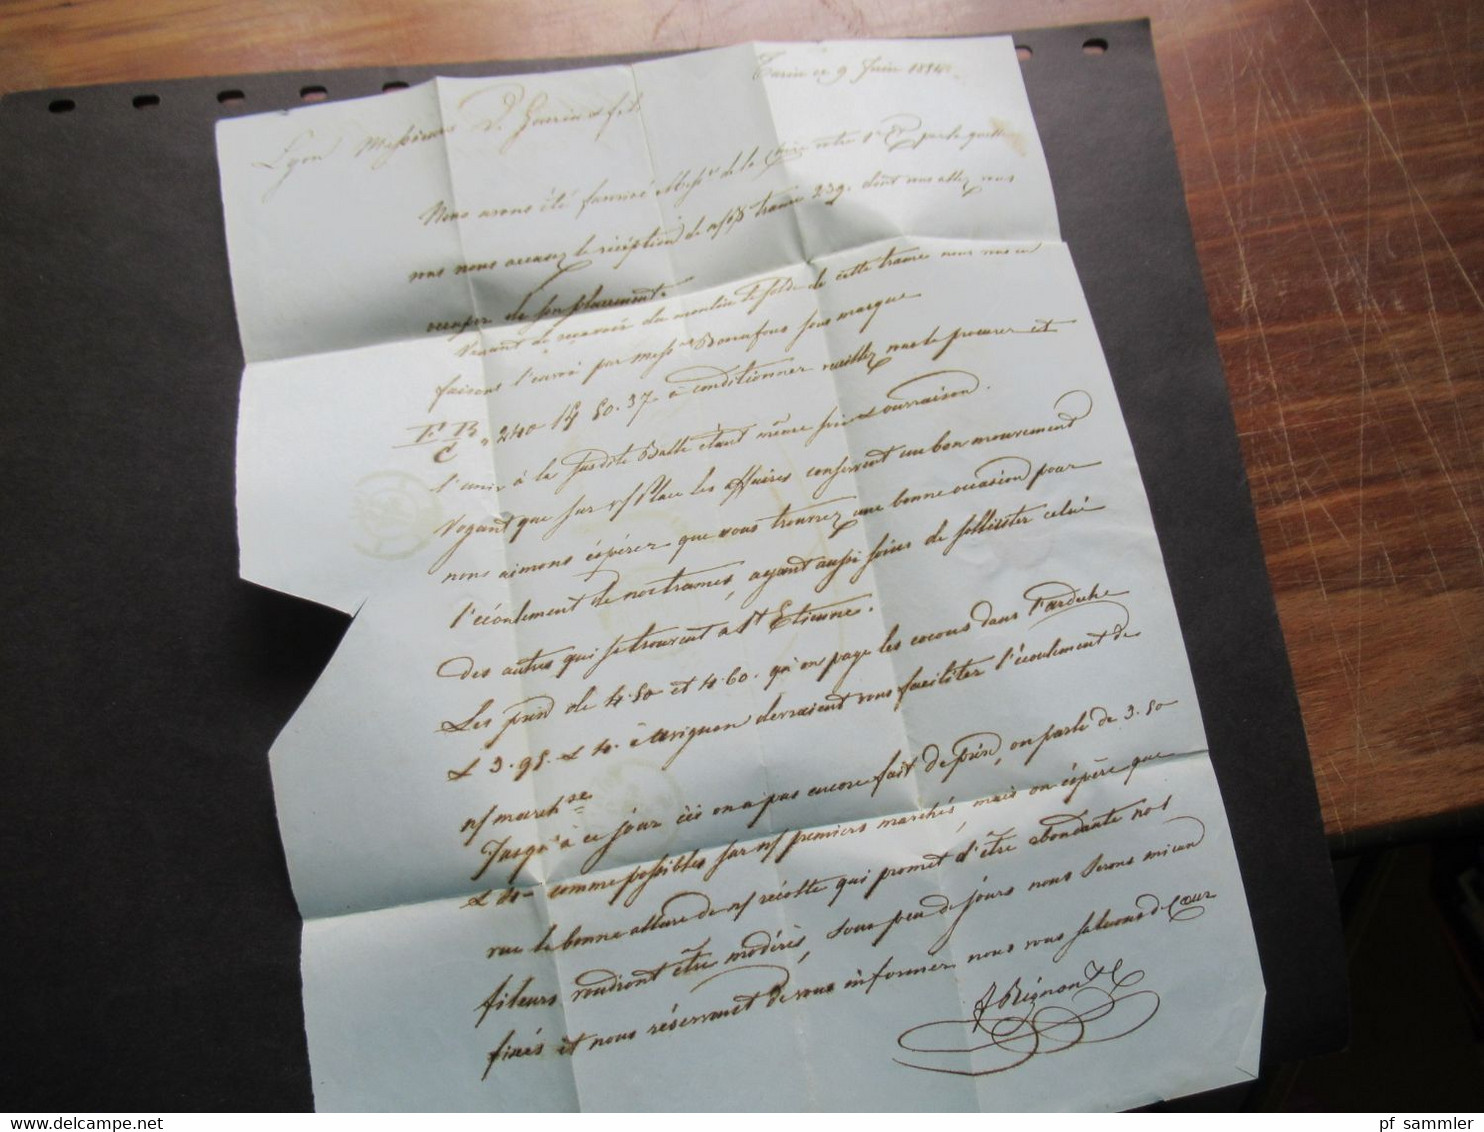 Turin le 9 Juin 1854
Lyon Messieurs Vve Guerin & fils
Nous avons été favorisé Mess.rs de la chère votre 1er Ct par laquelle
vous nous accusez la réception de n/ps trames 239. dont vous allez vous
occuper de son placement.
Venant de recevoir du moulin le solde de cette trame nous vous en
faisons l'envoi par Mess.rs Bonnafous sous marque
F. B. C 240 50.37 à conditionner veuillez vous le procurer et
l'unir à la susdite Balle étant même prix & ouvraison.
Voyant que sur v/ place les affaires conservent un bon mouvement
nous aimons espérer que vous trouverez une bonne occasion pour
l'écoulement de nos trames, ayant aussi soins de solliciter celui
des autres qui se trouvent à St Etienne.
Les prix de 4.50 et 4.60. qu'on paye les cocons dans l'ardèche
& 3.95. & 4. à Avignon devraient vous faciliter l'écoulement de
n/ march.ses
Jusqu'à ce jour ici on a pas encore fait de prix, on parle de 3.50
& 60 comme possibles sur n/ premiers marchés, mais on espère que
vue la bonne allure de n/ récolte qui promet d'être abondante nos
fileurs voudront être modérés, sous peu de jours nous serons mieux
fixés et nous réservant de vous informer nous vous saluons de cœur
A Rignon & C
pf sammler